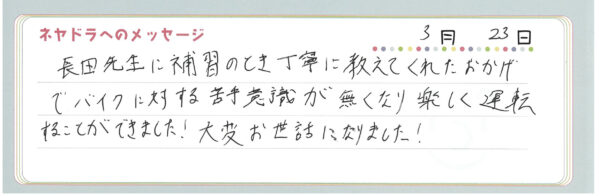 ネヤドラへのメッセージ 3月 23日
長田先生に補習のとき丁寧に教えてくれたおかげ
でバイクに対する苦手意識が無くなり楽しく運転
することができました!大変お世話になりました!